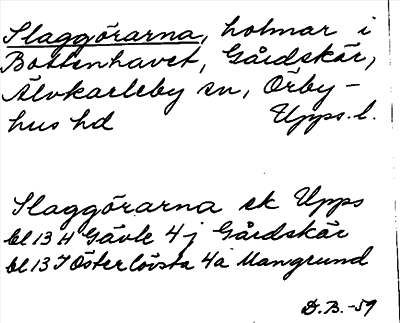 Slaggörarna, holmar i
Bottenhavet, Gårdskär,
Älvkarleby sn, Örby-
hus hd Upps. l.
Slaggörarna ek Upps
bl 13 H Gävle 4 j Gårdskär
bl 13 I Österlövsta 4a Mangrund
D.B.-59